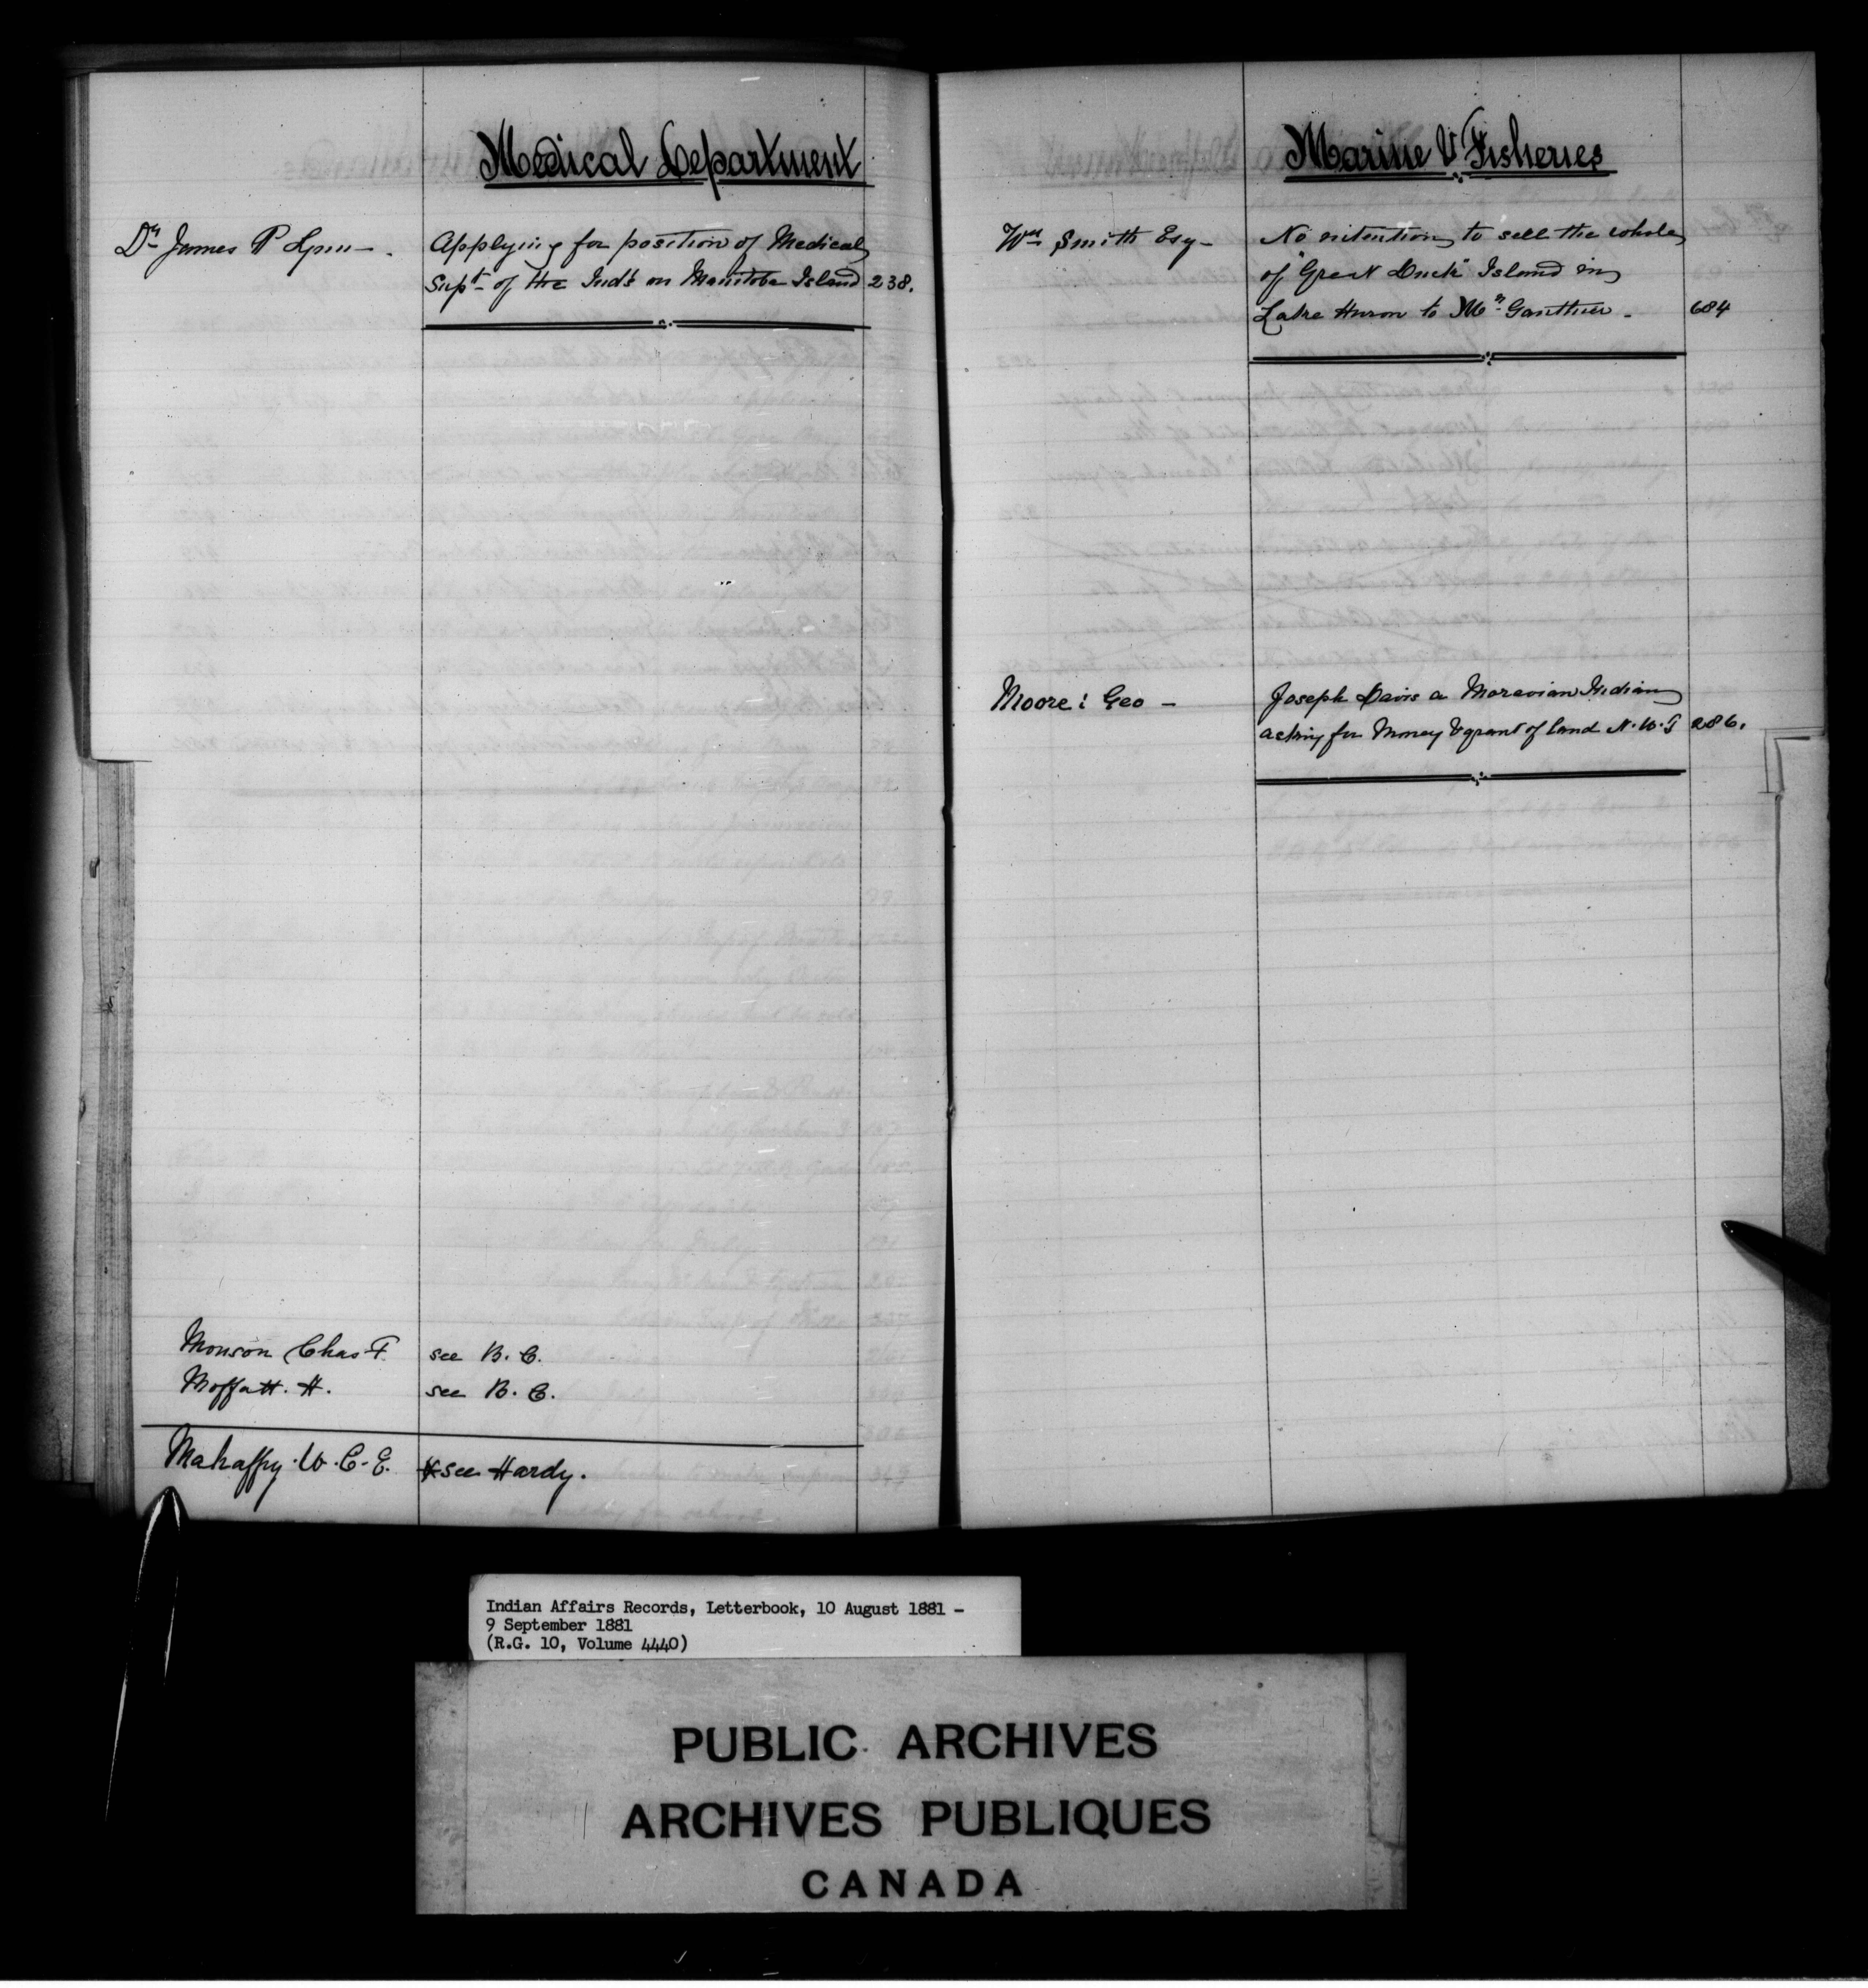 Medical Department
Dr James P Lynn - .
Applying for position of Medical
Supt of the Ind's on Manitoba Island 238.
Monson Chas F. see B. C.
Moffatt. H. see B. C.
Mahaffy. W. C. E. see Hardy.
Marine & Fisheries
Wm Smith Esq -
No intention to sell the whole
of "Great Duck" Island in
Lake Huron to Mr Gauthier - 684
Moore : Geo -
Joseph Davis a Moravian Indian
asking for Money & grant of land N. W. T 286.
Indian Affairs Records, Letterbook, 10 August 1881 -
9 September 1881
(R.G. 10, Volume 4440)
PUBLIC ARCHIVES
ARCHIVES PUBLIQUES
CANADA